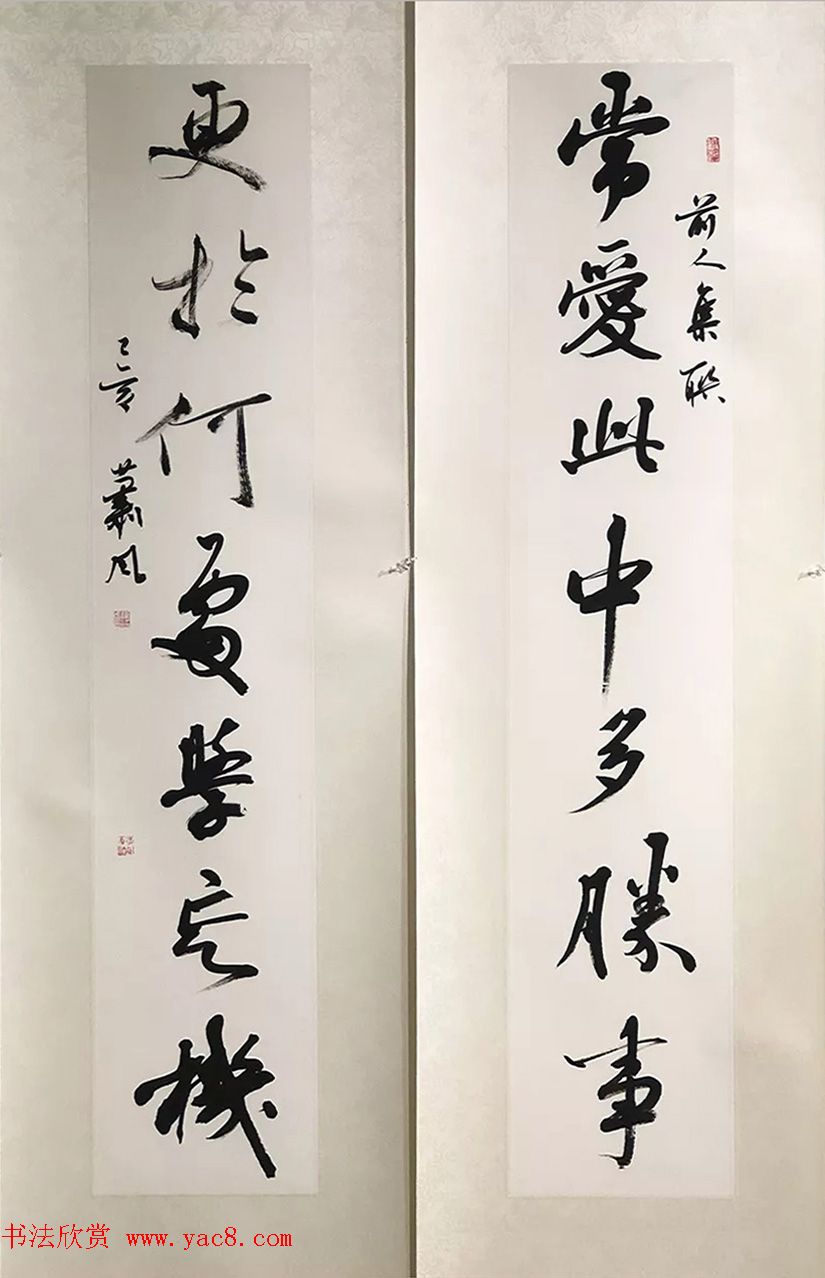 前人集联
常愛此中多勝事
更於何處學忘機
己亥 蕭風
书法欣赏 www.yac8.com